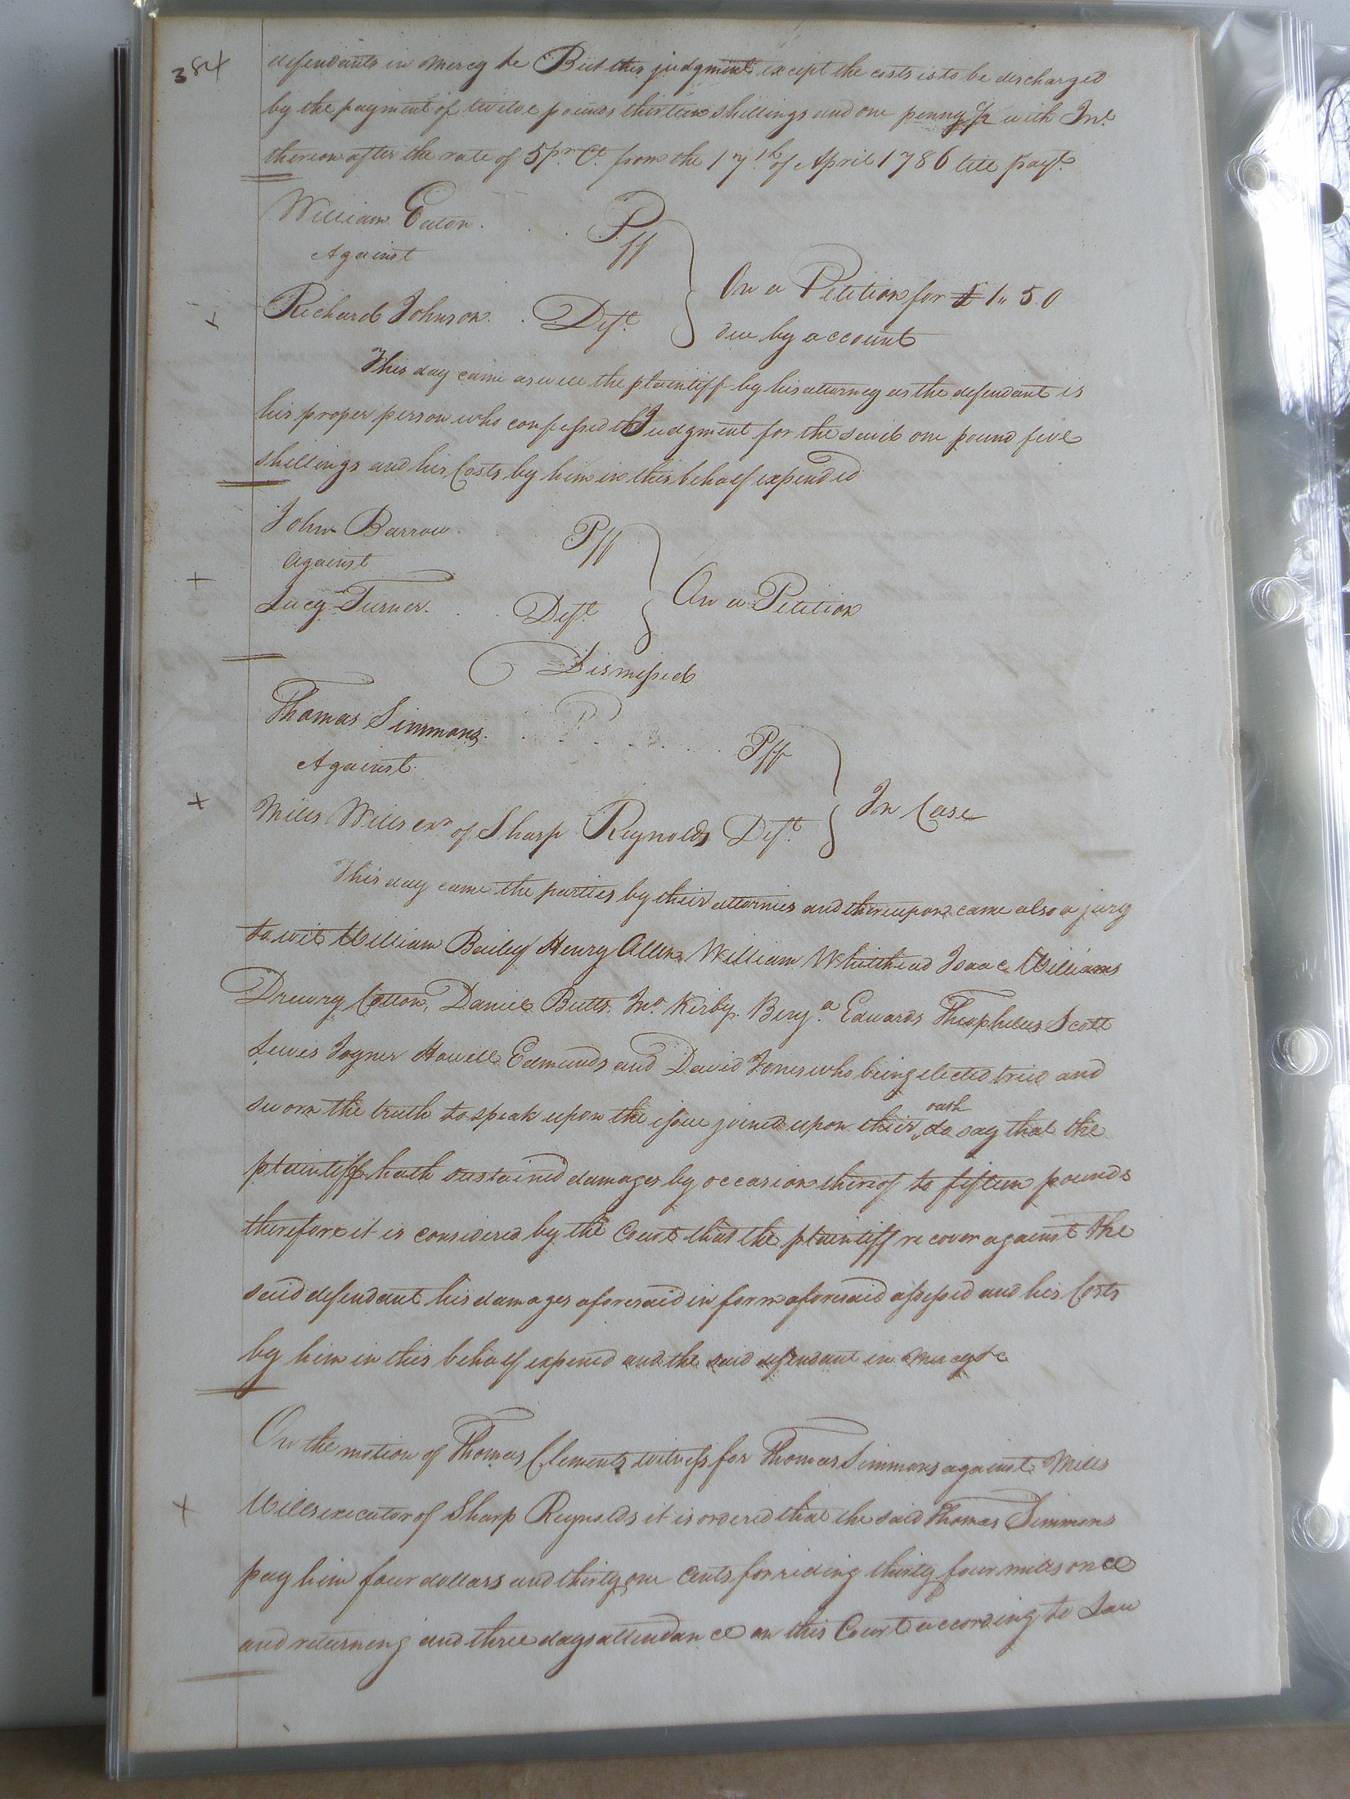 384
defendants in mercy &c But this judgment except the costs is to be discharged
by the payment of twelve pounds thirteen shillings and one penny with Int
thereon after the rate of 5 pr Ct. from the 17th of April 1786 till payt.
William Eaton . . . Pff
Against
Richard Johnson . . Deft
On a Petition for £1.. 5.0
due by account
This day came as well the plaintiff by his attorney as the defendant is
his proper person who confessed Judgment for the said one pound five
shillings and his Costs by him in this behalf expended
John Barrow . . Pff
against
Lucy Turner . . Deft
On a Petition
Dismissed
Thomas Simmons . . . Pff
Against
Mills Wills exr of Sharp Reynolds Deft
In Case
This day came the parties by their attornies and thereupon came also a jury
to wit William Bailey Henry Allen William Whitehead Isaac Williams
Drewry Cotton, Daniel Butts. Jno Kirby. Benja. Edwards Theophelus Scott
Lewis Joyner Howell Edmunds and David Jones who being elected tried and
sworn the truth to speak upon the issue joined upon their oath do say that the
plaintiff hath sustained damages by occasion thereof to fifteen pounds
therefore it is considered by the Court that the plaintiff recover against the
said defendant his damages aforesaid in form aforesaid assessed and his Costs
by him in this behalf expened and the said defendant in mercy &c
On the motion of Thomas Clements witness for Thomas Simmons against Mills
Wills executor of Sharp Reynolds it is ordered that the said Thomas Simmons
pay him four dollars and thirty one Cents for riding thirty four miles once
and returning and three days attendance on this Court according to Law